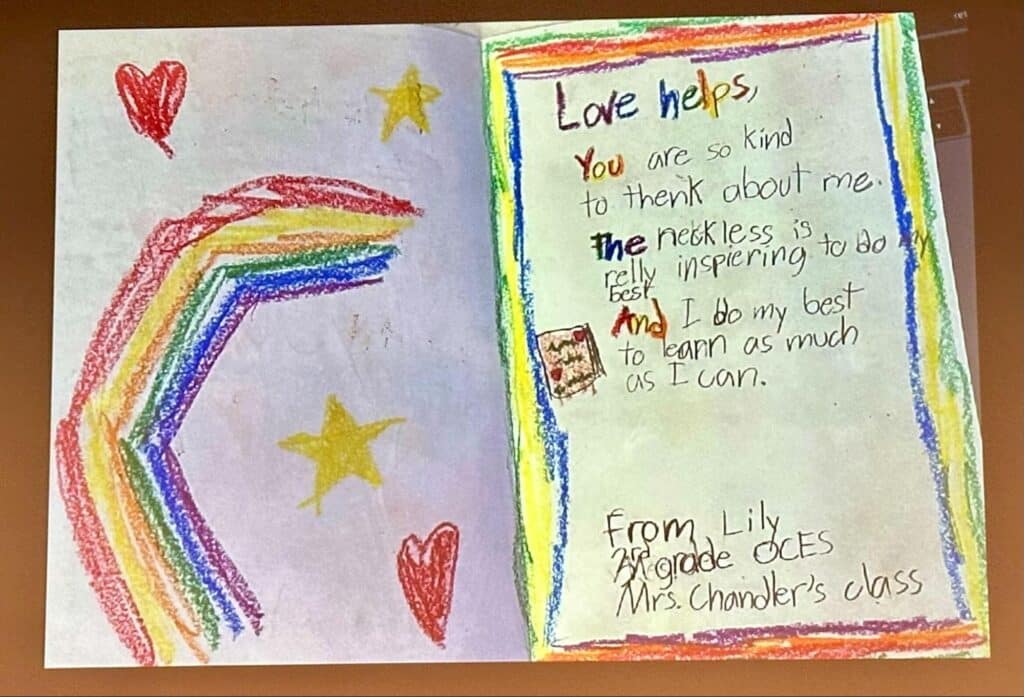 Love helps,
You are so kind
to thenk about me.
The neckless is
relly inspiering to do my
best
And I do my best
to leann as much
as I can.
From Lily
grade OCES
Mrs. Chandler's class